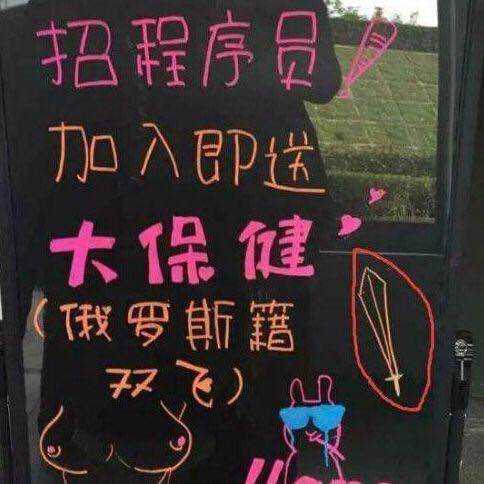 招程序员
加入即送
大保健
(俄罗斯籍
双飞)